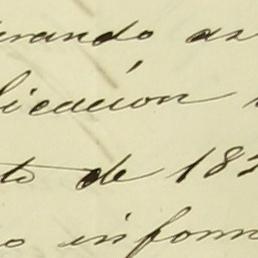 rando as
licación
to de 183
o inform